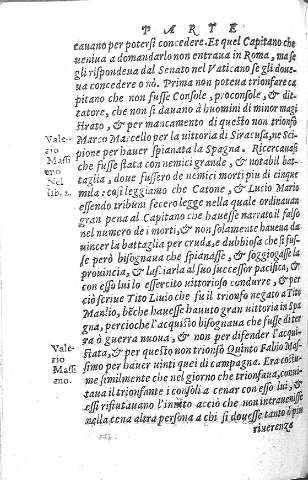 PARTE
tauano per potersi concedere. Et quel Capitano che
ueniua a domandarlo non entraua in Roma, ma se
gli rispondeua dal Senato nel Vaticano se gli doue-
ua concedere o nò. Prima non poteua trionfare ca
pitano che non fusse Console, proconsole, & dit-
tatore, che non si dauano à huomini di minor magi
strato, & per mancamento di questo non trionfò
Marco Marcello per la uittoria di Siracusa, ne Sci-
pione per hauer spianata la Spagna. Ricercauasi
che fusse stata con nemici grande, & notabil bat-
taglia, doue fussero de nemici morti piu di cinque
mila: così leggiamo che Catone, & Lucio Mario
essendo tribuni fecero legge nella quale ordinauan
gran pena al Capitano che hauesse narrato il falso
nel numero de i morti, & non solamente haueua da
uincer la battaglia per cruda, e dubbiosa che si fus-
se però bisognaua che spianasse, & soggiogasse la
prouincia, & lasciarla al suo successor pacifica, &
con esso lui lo essercito uittorioso condurre, & per
ciò scriue Tito Liuio che fu il trionfo negato a Tito
Manlio, bẽche hauesse hauuto gran uittoria in Spa
gna, percioche l'acquisto bisognaua che fusse di ter
ra ò guerra nuoua, & non per difender l'acqui-
stata, & per questo non trionfò Quinto Fabio Mas-
simo per hauer uinti quei di campagna. Era costu-
me similmente che nel giorno che trionfaua, conui-
taua il trionfante i consoli a cenar con esso lui, &
essi rifiutauano l'inuito acciò che non intrauenisse
nella cena altra persona a chi si douesse tanto ò più
riuerenza
Vale-
rio
Massi
mo
Nel
lib. 2.
Vale-
rio
Massi
mo.